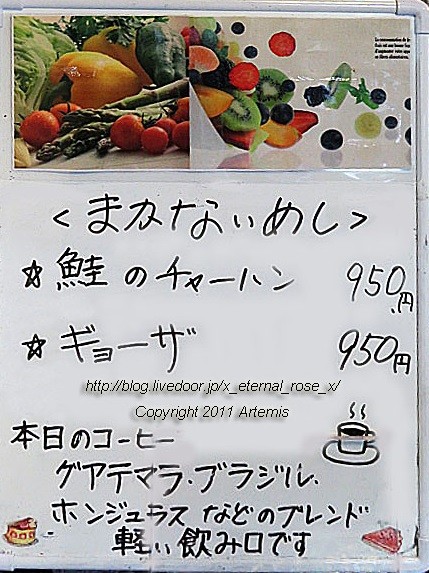 <まかないめし>
☆鮭のチャーハン 950円
☆ギョーザ 950円
http://blog.livedoor.jp/x_eternal_rose_x/
Copyright 2011 Artemis
本日のコーヒー
グアテマラ・ブラジル・
ホンジュラスなどのブレンド
軽い飲み口です